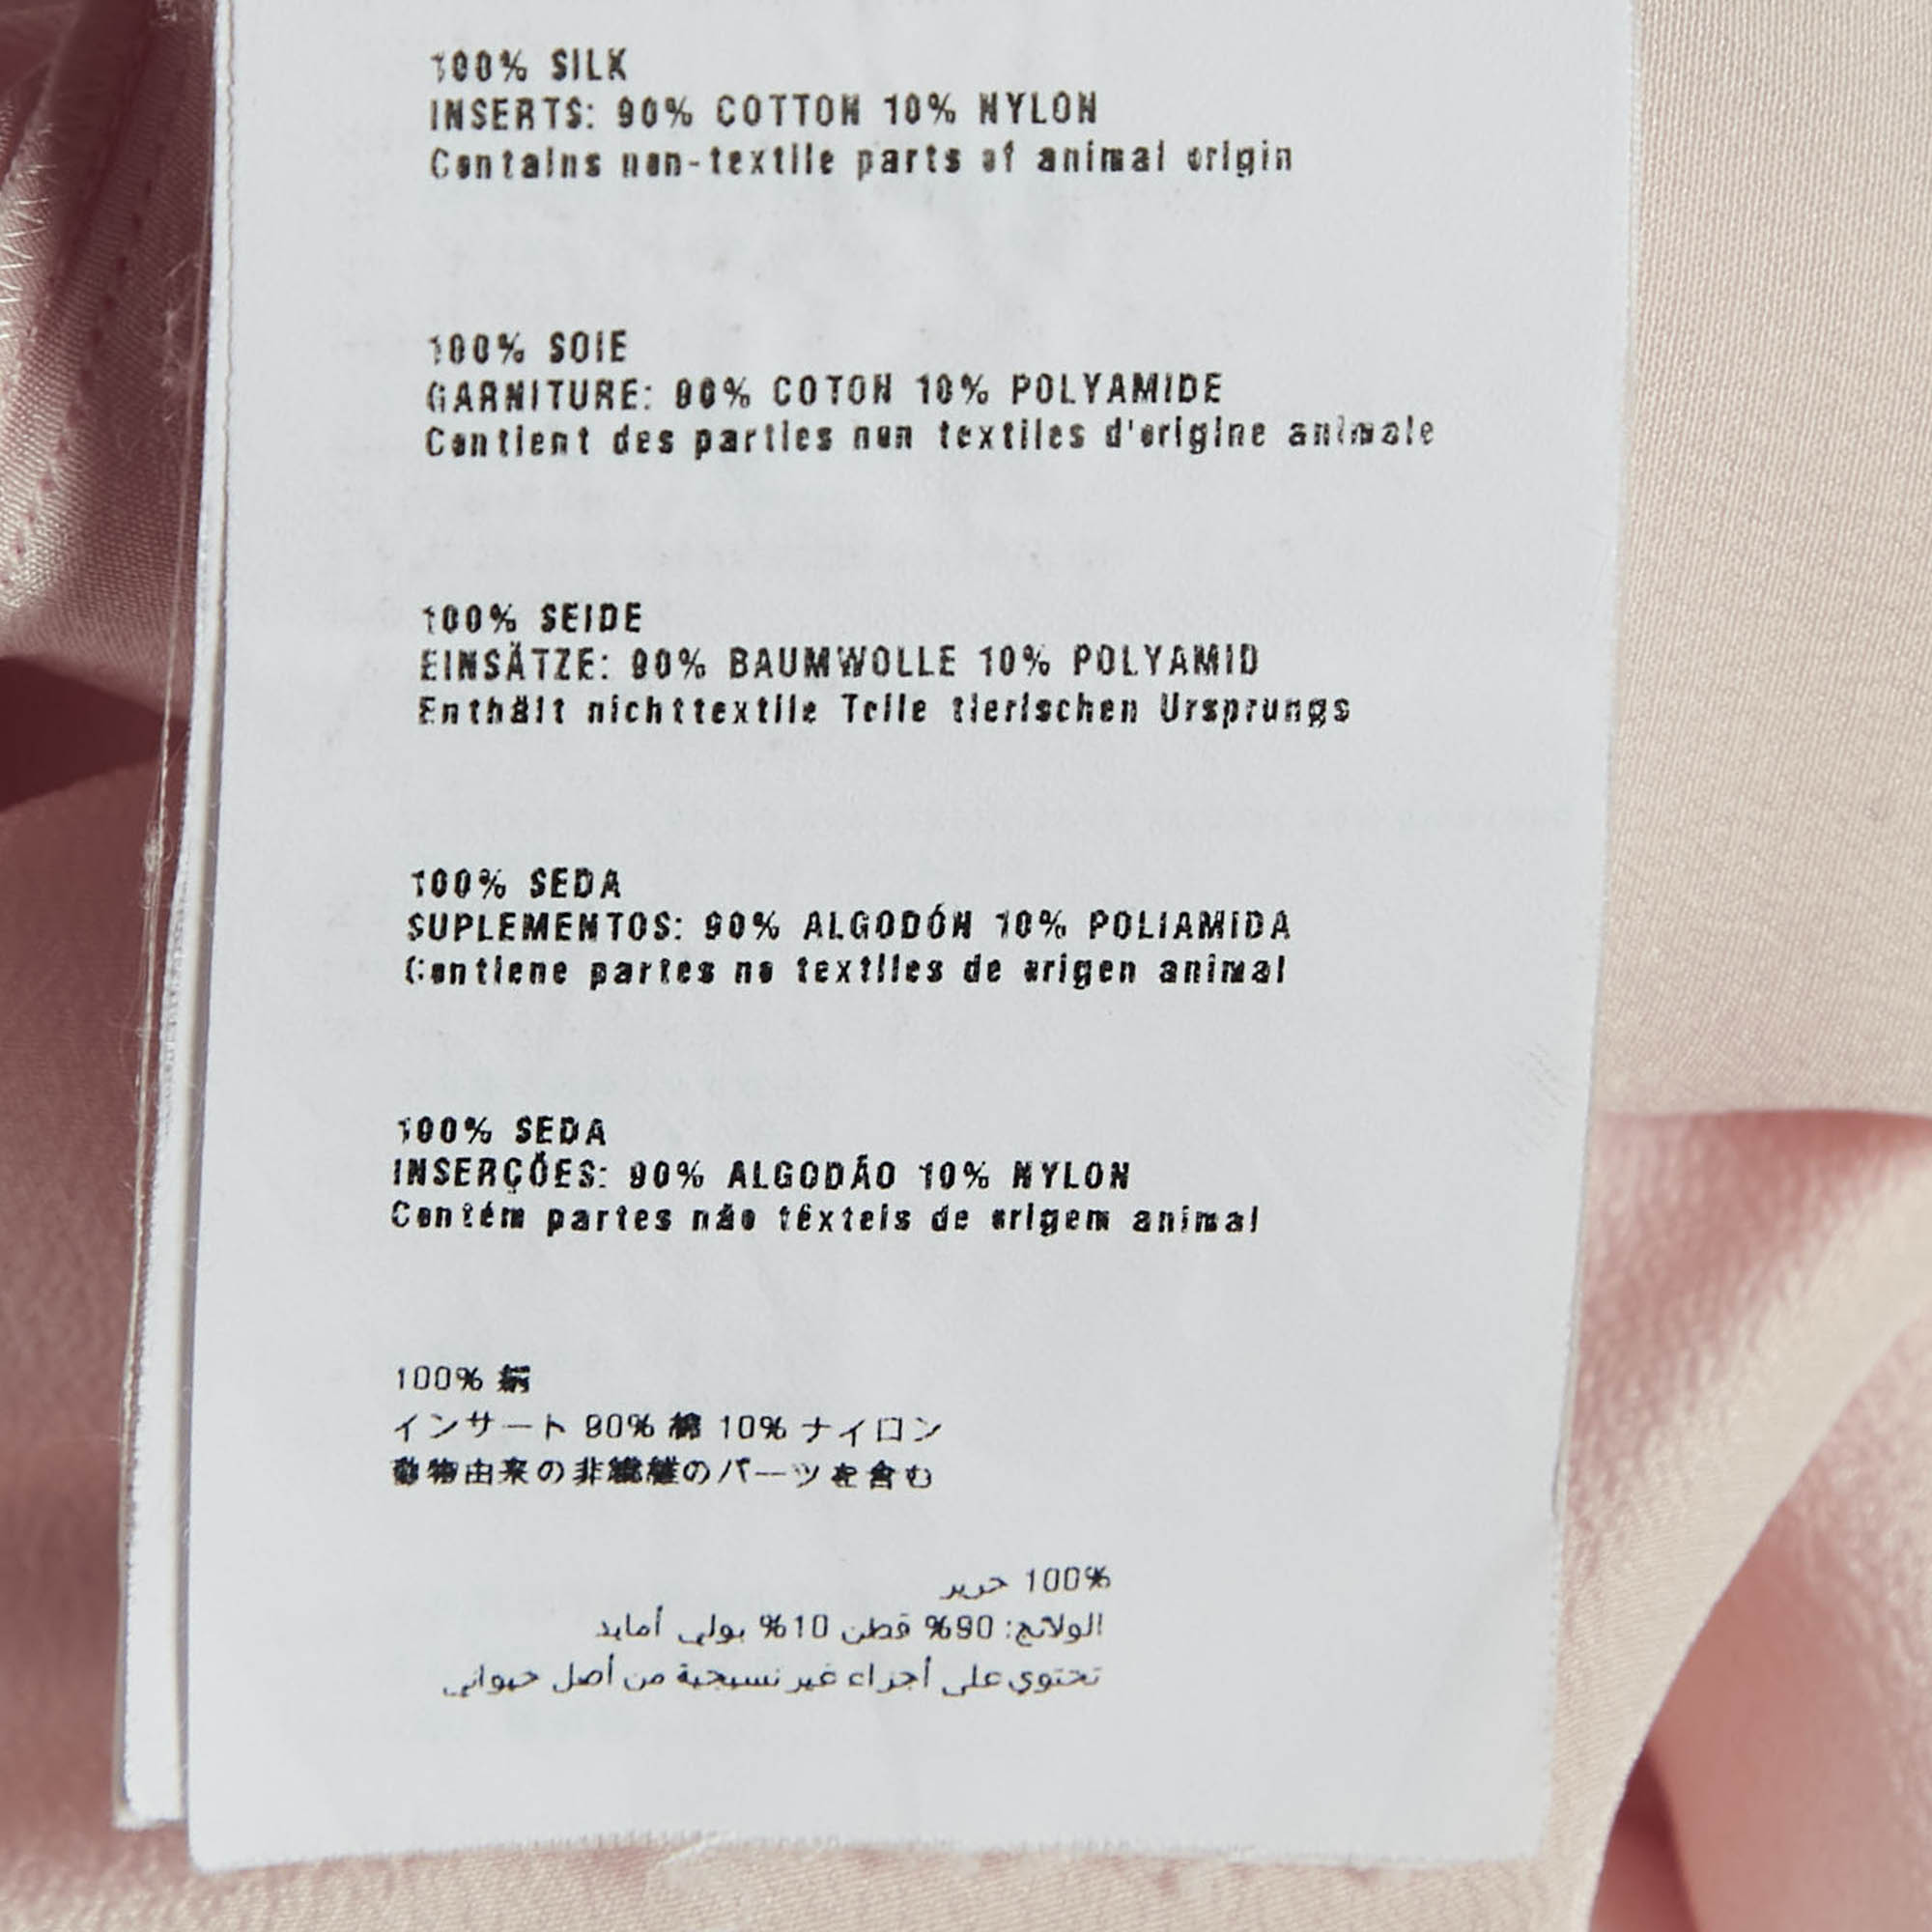 100% SILK
INSERTS: 90% COTTON 10% NYLON
Contains non-textile parts of animal origin
100% SOIE
GARNITURE: 90% COTON 10% POLYAMIDE
Contient des parties non textiles d'origine animale
100% SEIDE
EINSÄTZE: 90% BAUMWOLLE 10% POLYAMID
Enthält nichttextile Teile tierischen Ursprungs
100% SEDA
SUPLEMENTOS: 90% ALGODÓN 10% POLIAMIDA
Contiene partes no textiles de origen animal
100% SEDA
INSERÇÕES: 90% ALGODÃO 10% NYLON
Contém partes não têxteis de origem animal
100% 絹
インサート 90% 綿 10% ナイロン
動物由来の非繊維のパーツを含む
100% حرير
الولائج: 90% قطن 10% بولي أمايد
تحتوي على أجزاء غير نسيجية من أصل حيواني